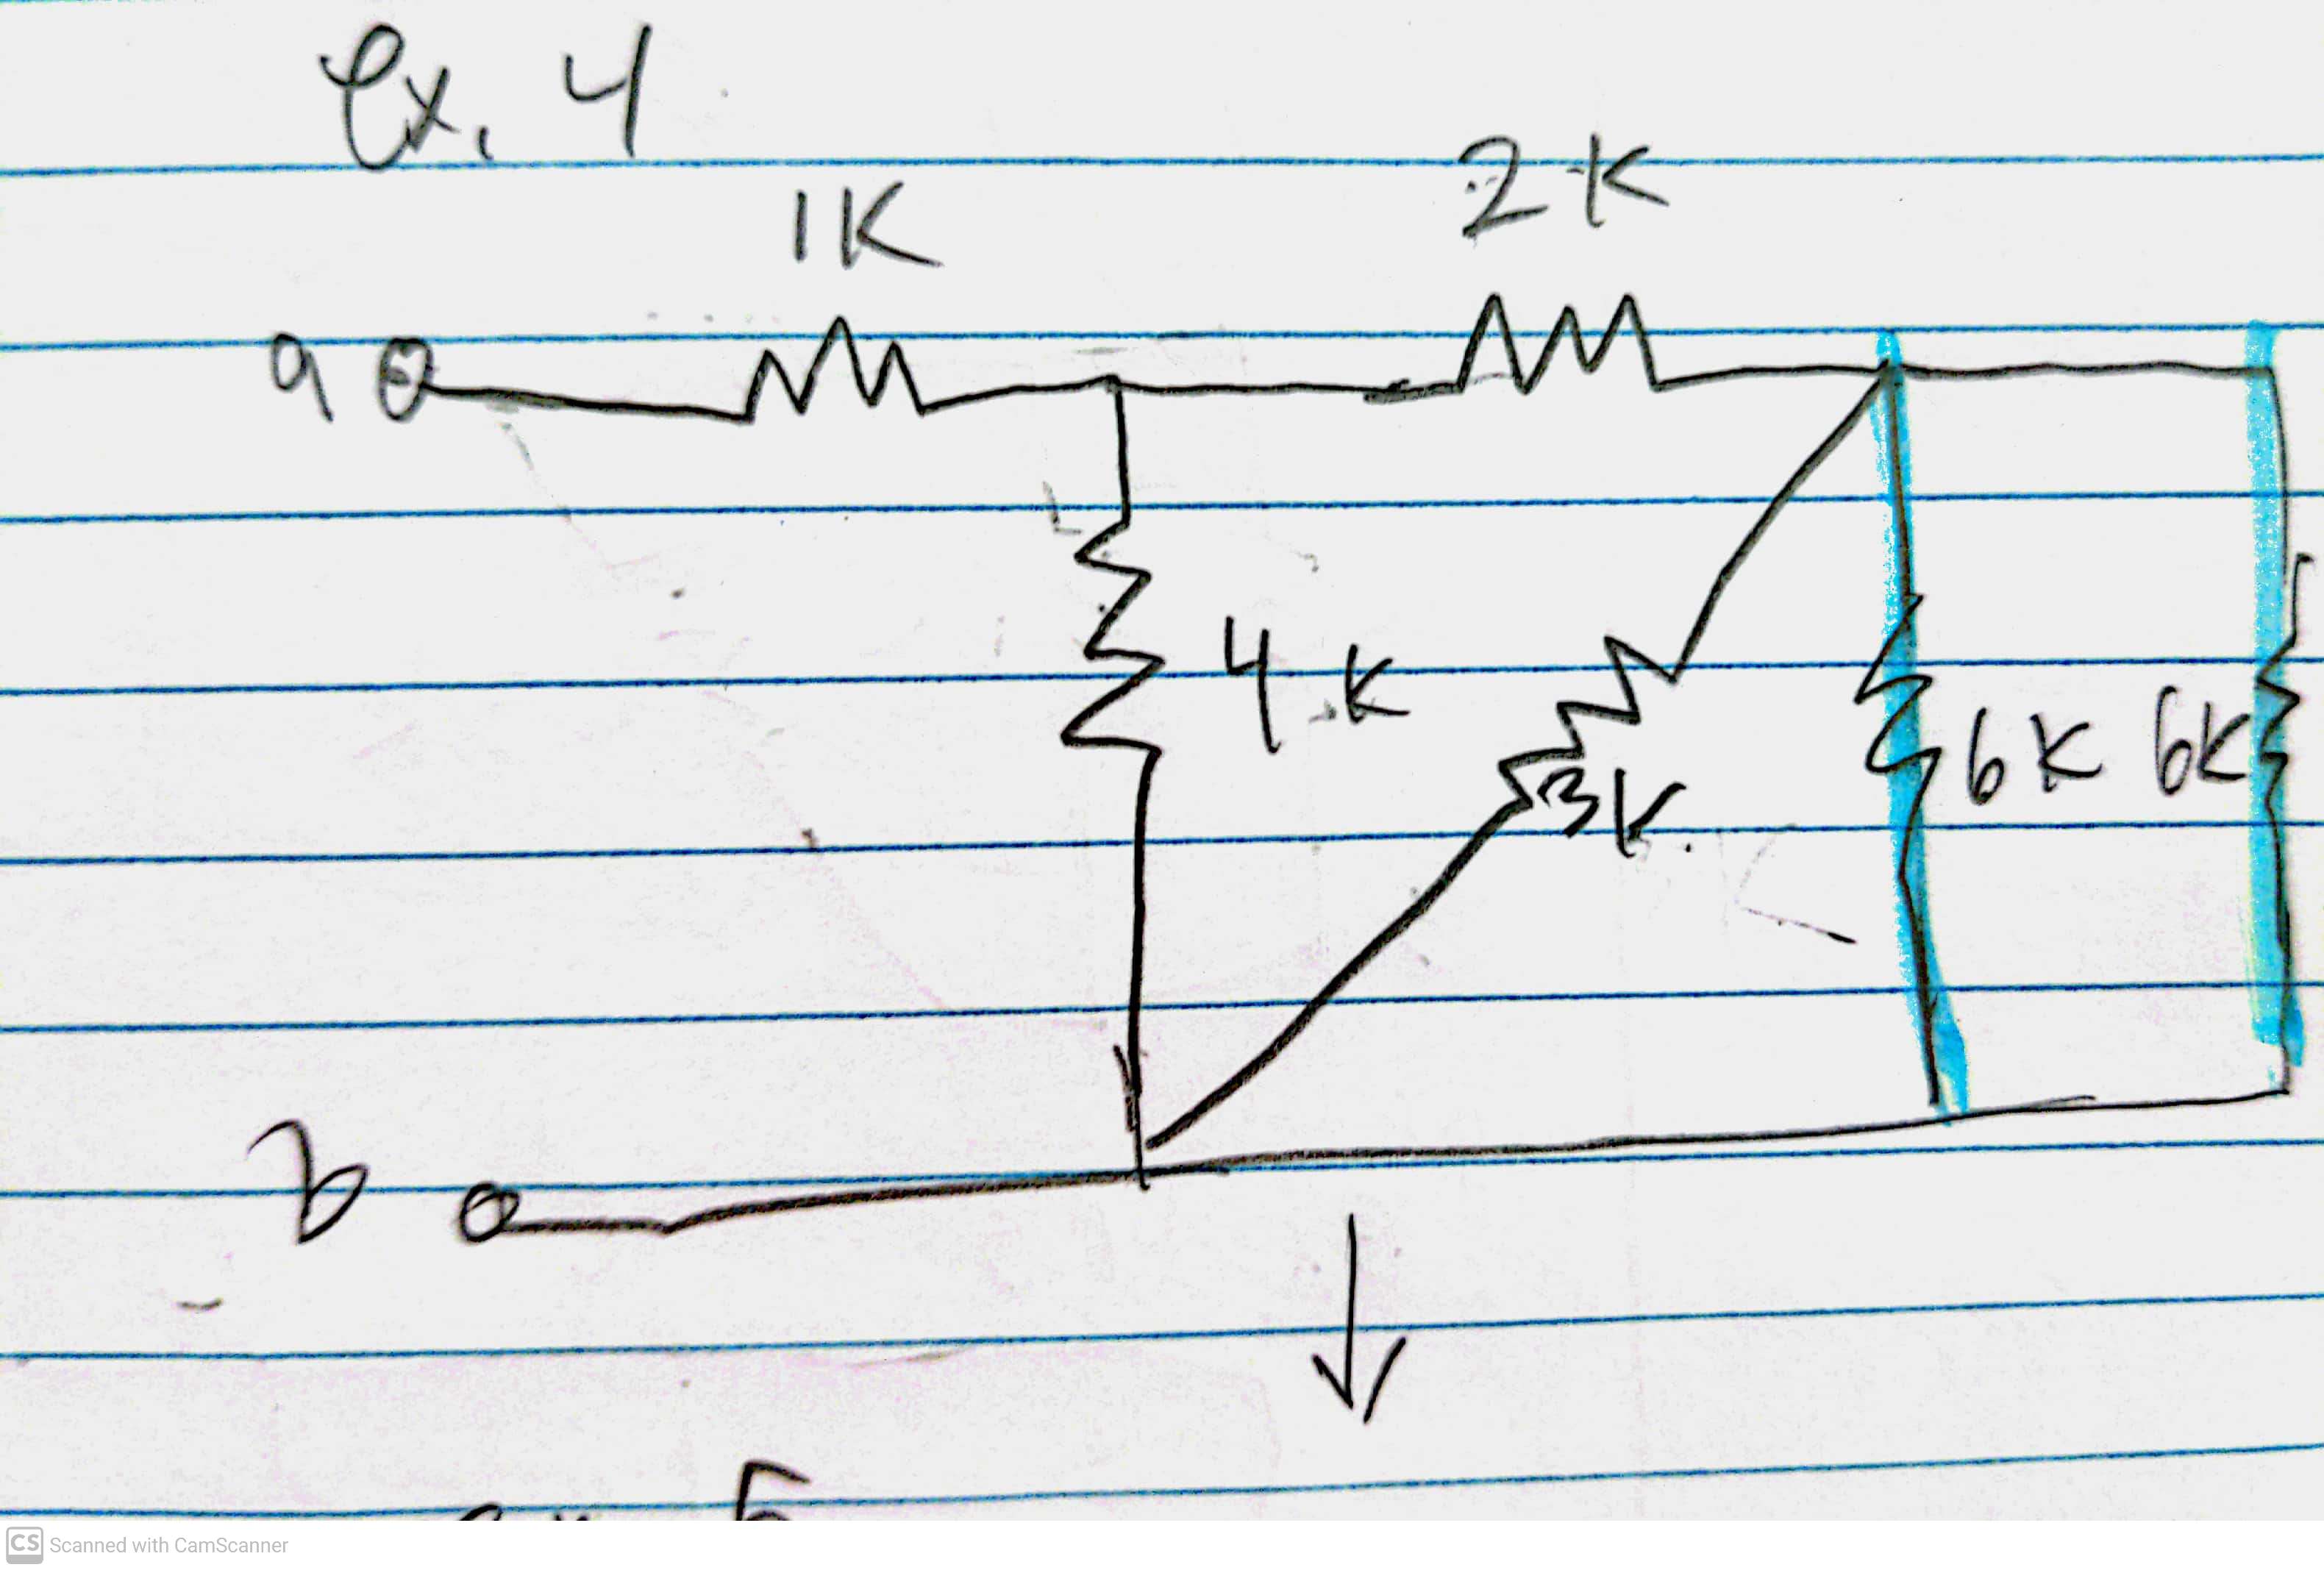 ex. 4
1K
2K
a
4K
3K
6K 6K
b
CS Scanned with CamScanner